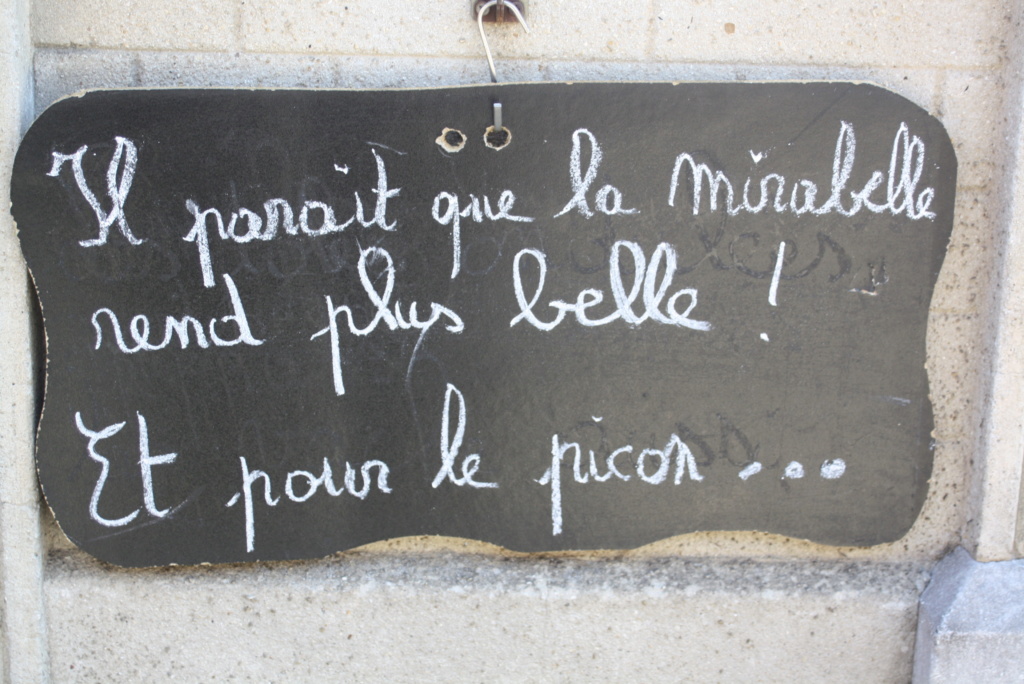 Il paraît que la mirabelle
rend plus belle !
Et pour le picon ...